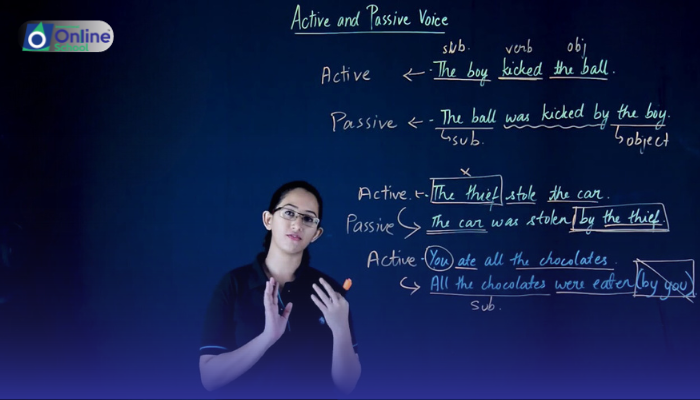 Online
School
Active and Passive Voice
sub. verb obj
Active ← The boy kicked the ball.
Passive ← The ball was kicked by the boy.
sub. object
x
Active ← The thief stole the car.
Passive The car was stolen by the thief
Active - You ate all the chocolates.
All the chocolates were eaten (by you).
sub.